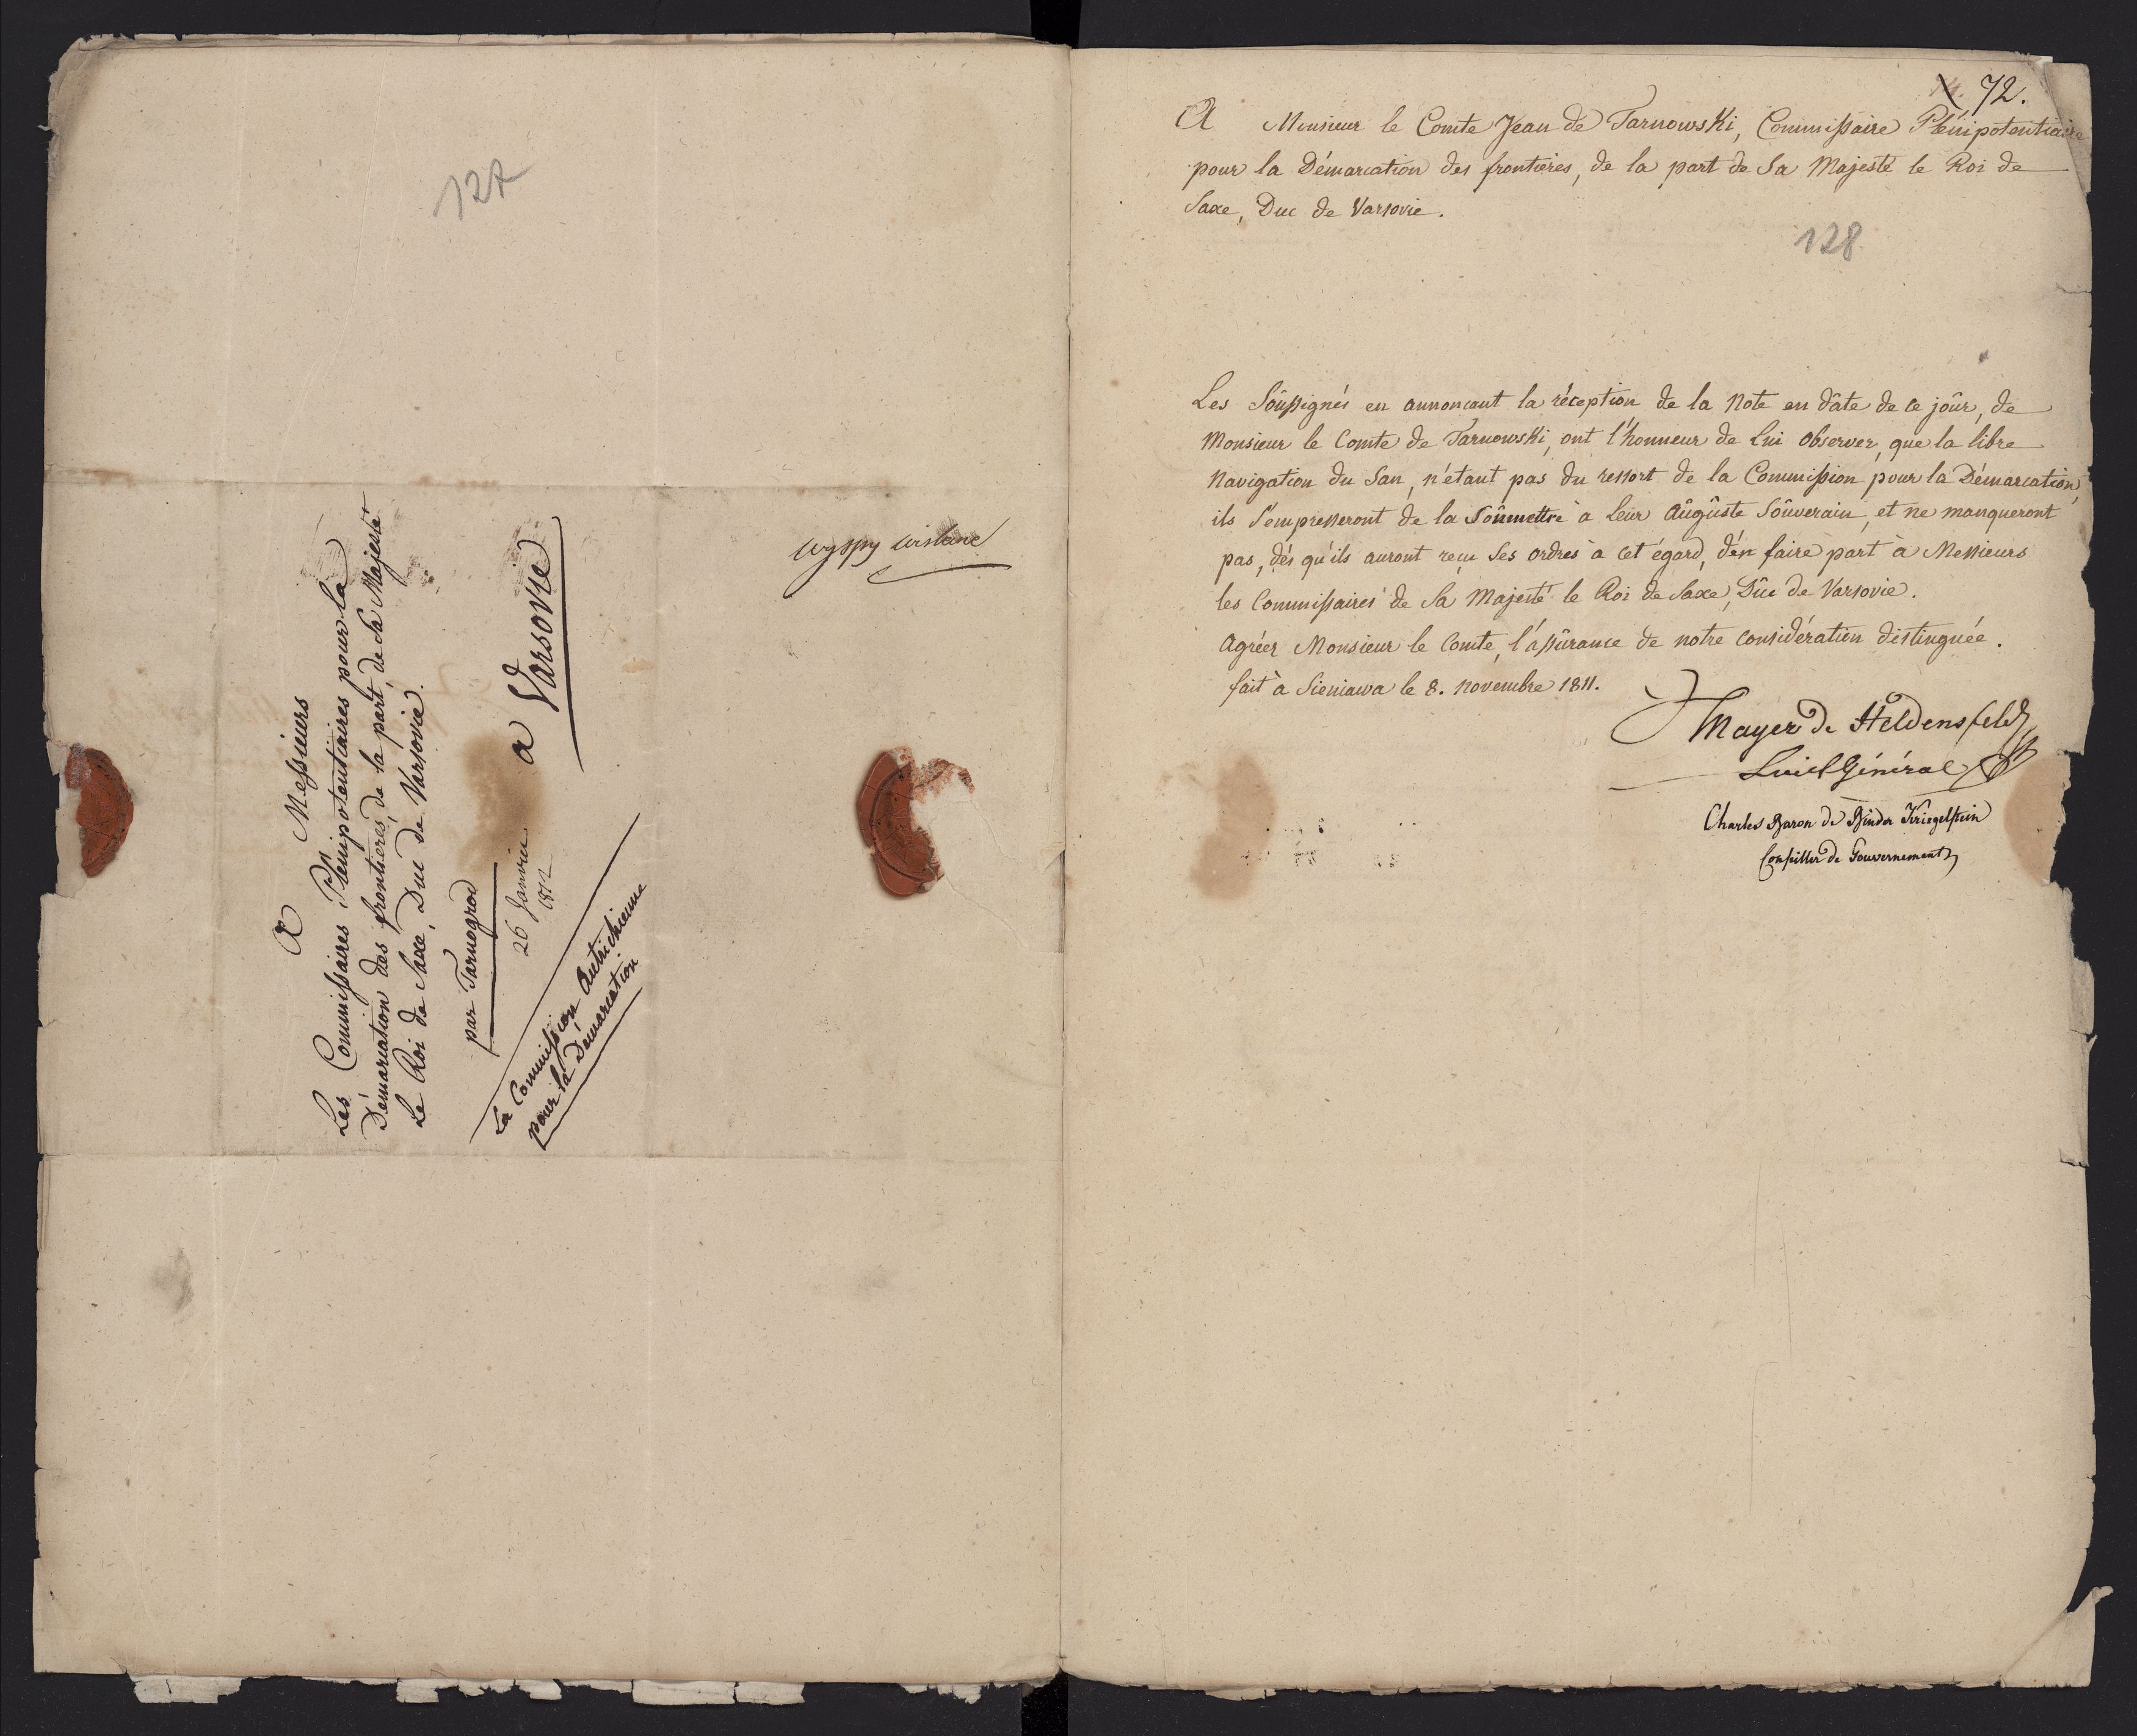 127
A
Messieurs
Les Commissaires Plénipotentiaires pour la
Démarcation des frontières, de la part, de Sa Majesté
Le Roi de Saxe, Duc de Varsovie.
par Tarnogrod
a Varsovie
26 Janvier
1812
La Commission Autrichienne
pour la Démarcation
wyspy wislane
72.
A Monsieur le Comte Jean de Tarnowski, Commissaire Plénipotentiaire
pour la Démarcation des frontières, de la part de Sa Majesté le Roi de
Saxe, Duc de Varsovie.
128
Les Soûssignés en annoncant la réception de la Note en dâte de ce joûr, de
Monsieur le Comte de Tarnowski, ont l'honneur de Lui observer, que la libre
Navigation du San, n'étant pas du ressort de la Commission pour la Démarcation,
ils s'empresseront de la Soûmettre à Leur Aûgûste Soûverain, et ne manqueront
pas, dés qu'ils auront reçu Ses ordres à cet égard, d'én faire part à Messieurs
les Commissaires de Sa Majesté le Roi de Saxe, Dûc de Varsovie.
Agréez Monsieur le Comte, l'assûrance de notre considération distinguée.
fait à Sieniawa le 8. novembre 1811.
Mayer de Heldensfeld
Général
Charles Baron de Binder Kriegelstein
Conseiller de Gouvernement